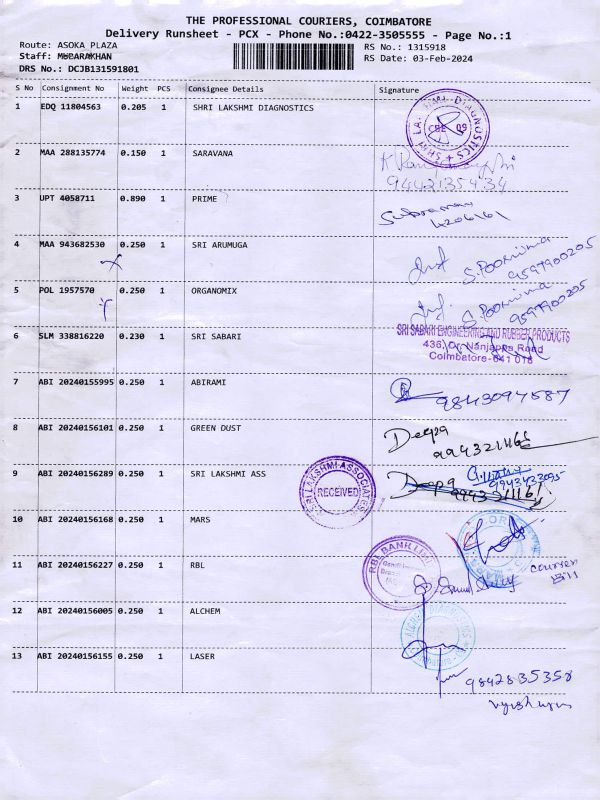 THE PROFESSIONAL COURIERS, COIMBATORE
Delivery Runsheet - PCX - Phone No.:0422-3505555 - Page No.:1
Route: ASOKA PLAZA
RS No.: 1315918
Staff: MUBARAKHAN
RS Date: 03-Feb-2024
DRS No.: DCJB131591801
S No Consignment No Weight PCS Consignee Details Signature
1 EDQ 11804563 0.205 1 SHRI LAKSHMI DIAGNOSTICS
2 MAA 288135774 0.150 1 SARAVANA
9442135434
3 UPT 4058711 0.890 1 PRIME
4206161
4 MAA 943682530 0.250 1 SRI ARUMUGA
S. Poornima
9597900205
5 POL 1957570 0.250 1 ORGANOMIX
S. Poornima
9597900205
6 SLM 338816220 0.230 1 SRI SABARI
SRI SABARI ENGINEERING AND RUBBER PRODUCTS
436, Dr. Nanjappa Road
Coimbatore-641 018
7 ABI 20240155995 0.250 1 ABIRAMI
9843094587
8 ABI 20240156101 0.250 1 GREEN DUST
Deepa
9 ABI 20240156289 0.250 1 SRI LAKSHMI ASS
SRI LAKSHMI ASSOCIATES
RECEIVED
Deepa
10 ABI 20240156168 0.250 1 MARS
11 ABI 20240156227 0.250 1 RBL
RBL BANK LIMITED
courier
Bill
12 ABI 20240156005 0.250 1 ALCHEM
13 ABI 20240156155 0.250 1 LASER
9842835358